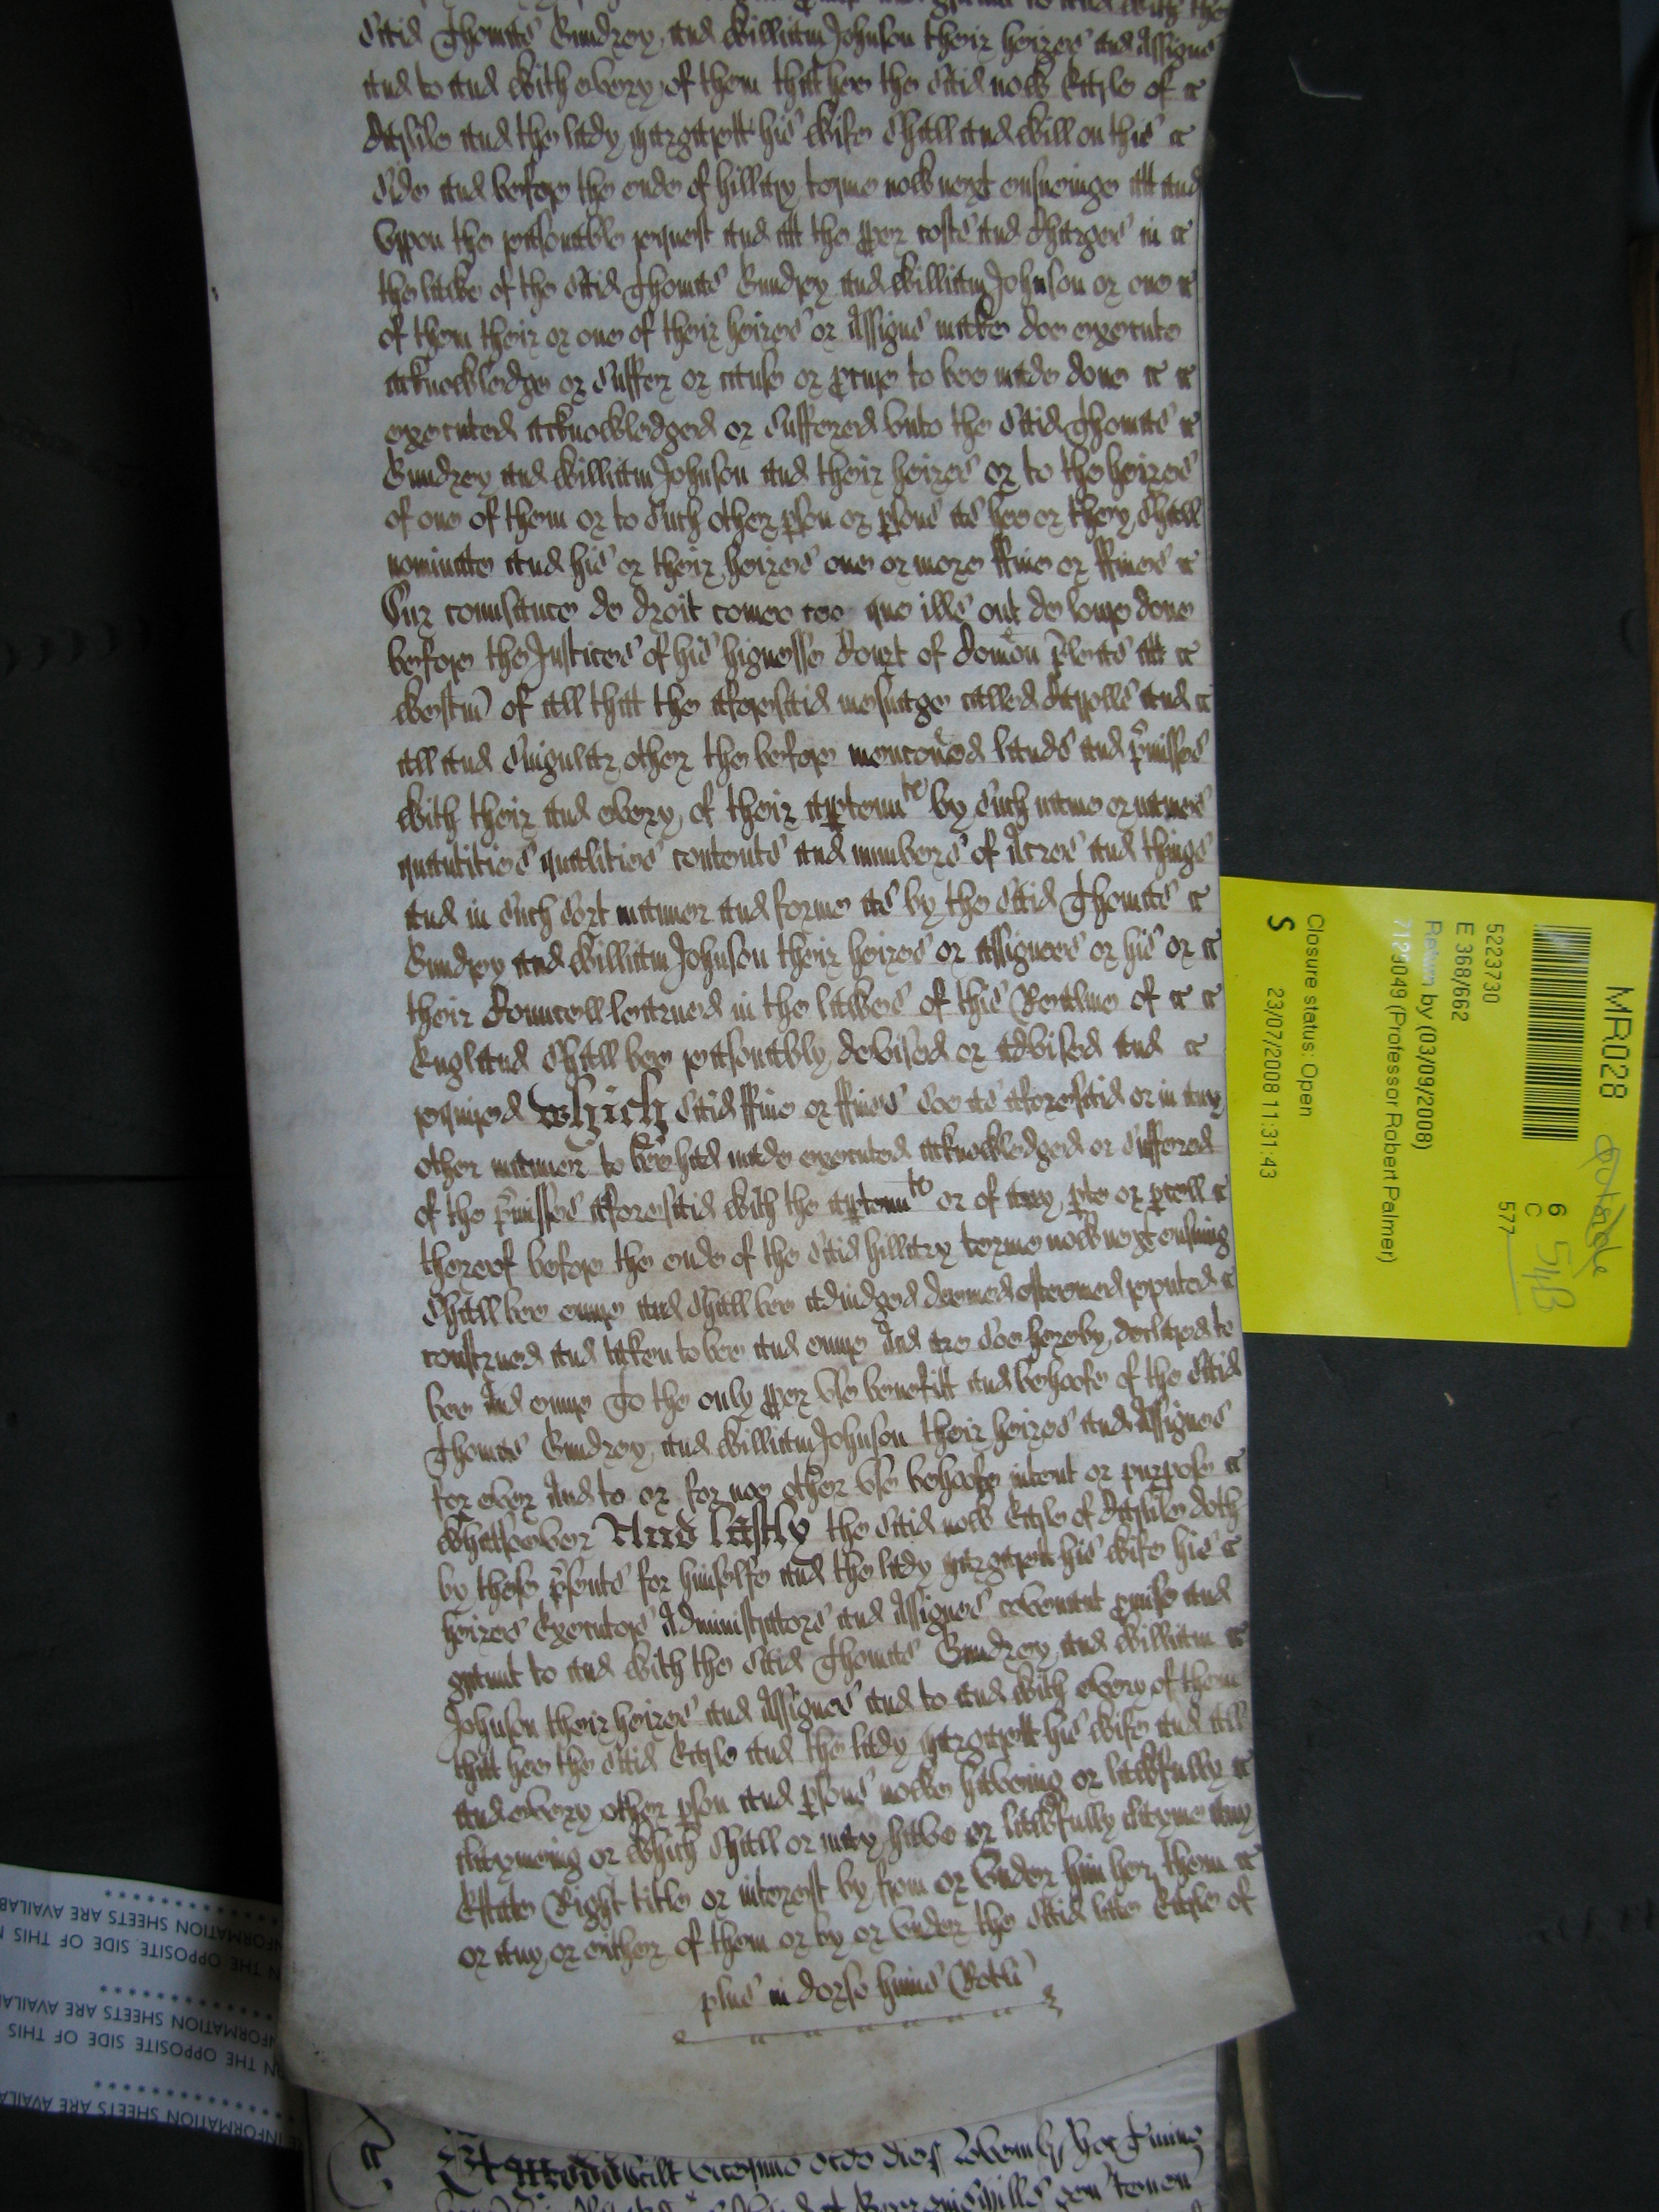 said Thomas Gundrey and William Johnson their heires and Assignes
and to and with every of them that hee the said now Earle of
Carlile and the lady Margarett his wife shall and will on this
side and before the ende of hillary terme now next ensueinge att and
vppon the reasonable request and att the pper costs and Charges in
the lawe of the said Thomas Gundrey and William Johnson or one
of them their or one of their heires or Assignes make doe execute
acknowledge or suffer or cause or pcure to bee made done
executed acknowledged or suffered vnto the said Thomas
Gundrey and William Johnson and their heires or to the heires
of one of them or to such other pson or psons as hee or they shall
nominate and his or their heires one or more ffine or ffines
Sur conusance de droit comeo ceo que ills ont de lour done
before the Justices of his highnesse Court of Comon Pleas att
Westm of all that the aforesaid mesuage called and
all and singular other the before menconed lands and pmisses
with their and every of their apptennces by such name or names
quantities qualities contents and numbers of Acres and things
and in such sort manner and forme as by the said Thomas
Gundrey and William Johnson their heires or assignees or his or
their Councell learned in the lawes of this Realme of
England shall bee reasonably devised or advised and
required Which said ffine or ffines soe as aforesaid or in any
other manner to bee had made executed acknowledged or suffered
of the pmisses aforesaid with the apptennces or of any pte or pcell
thereof before the ende of the said hillary terme now next ensuing
shall bee enure and shall bee adiudged deemed esteemed reputed
construed and taken to bee and enure And are soe hereby declared to
bee And enure To the only pper vse benefitt and behoofe of the said
Thomas Gundrey and William Johnson their heires and Assignes
for ever And to or for noe other vse behoofe intent or purpose
whatsoever And lastly the said now Earle of Carlile doth
by these psents for himselfe and the lady Margarett his wife his
heires Executors Administrators and Assignes covenant pmise and
graunt to and with the said Thomas Gundrey and William
Johnson their heires and Assignes and to and with every of them
that hee the said Earle and the lady Margarett his wife and all
and every other pson and psons nowe haveing or lawfully
claymeing or which shall or may have or lawfully clayme any
Estate Right title or interest by from or vnder him her them
or any or either of them or by or vnder the said late Earle of
plus in dorso huius Rotli
MR028
outside
6
C
548
577
5223730
E 368/662
Return by (03/09/2008)
7123049 (Professor Robert Palmer)
Closure status: Open
S
23/07/2008 11:31:43
INFORMATION SHEETS ARE AVAILAB
ON THE OPPOSITE SIDE OF THIS
INFORMATION SHEETS ARE AVAILA
ON THE OPPOSITE SIDE OF THIS
INFORMATION SHEETS ARE AVAILA